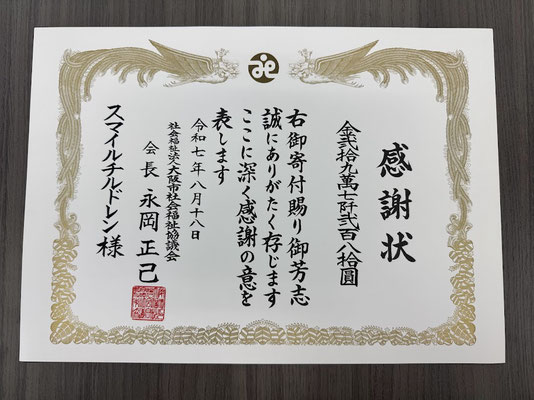 感謝状
金弐拾九萬七阡弐百八拾圓
右御寄付賜り御芳志
誠にありがたく存じます
ここに深く感謝の意を
表します
令和七年八月十八日
社会福祉法人大阪市社会福祉協議会
会長 永岡正己
スマイルチルドレン様